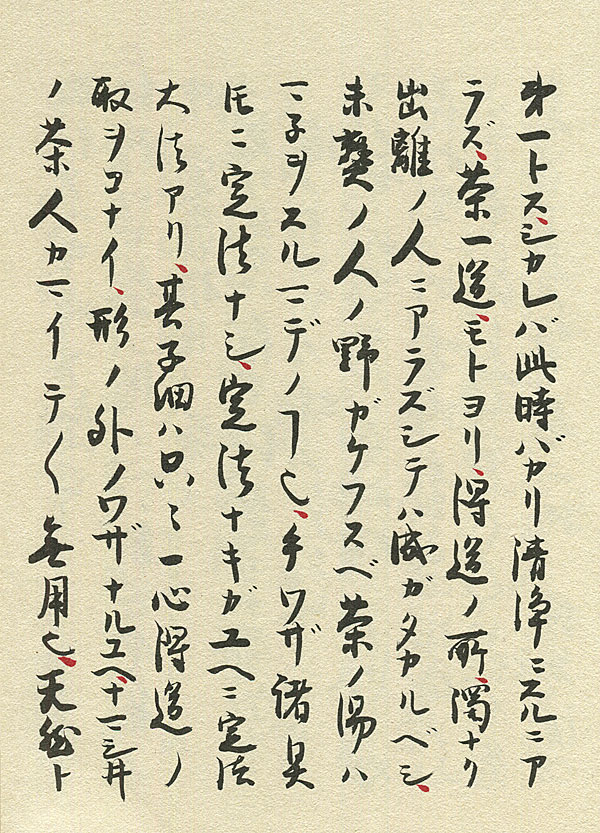 第一トス、シカレバ此時バカリ清浄ニスルニア
ラズ、茶一道、モトヨリ、得道ノ所、濁ナク
出離ノ人ニアラズシテハ成ガタカルベシ、
未熟ノ人ノ野ガケフスベ茶ノ湯ハ
マ子ヲスルマデノヿ也、手ワザ諸具
𪜈ニ定法ナシ、定法ナキガユヘニ定法
大法アリ、其子細ハ只々一心得道ノ
取ヲコナイ、形ノ外ノワザナルユヘ、ナマシ井
ノ茶人カマイテ〱無用也、天然ト